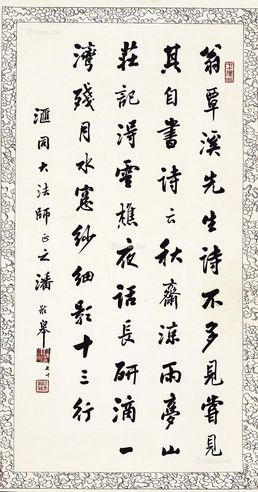 翁覃溪先生诗不多見嘗見
其自書詩云秋齋涼雨夢山
莊記得雲樵夜話長研滴一
灣殘月水窗紗細影十三行
滙同大法師正之潘